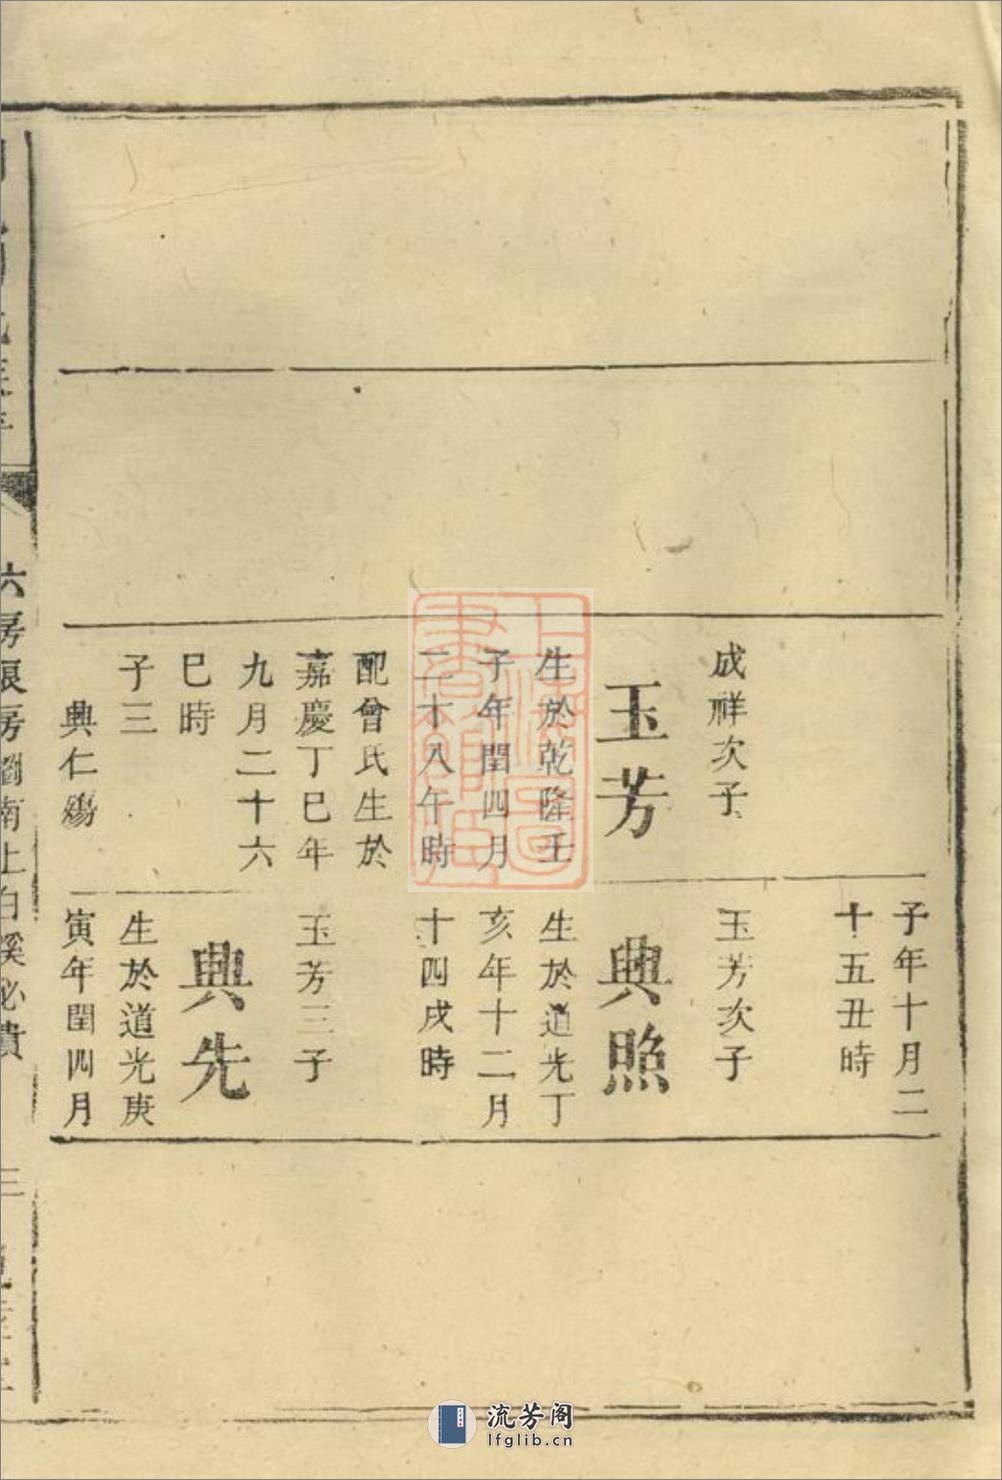 成祥次子
玉芳
生於乾隆壬
子年閏四月
二十八午時
配曾氏生於
嘉慶丁巳年
九月二十六
巳時
子三
典仁殤
子年十月二
十五丑時
玉芳次子
典照
生於道光丁
亥年十二月
十四戌時
玉芳三子
典先
生於道光庚
寅年閏四月
上海圖書館藏
流芳阁
lfglib.cn